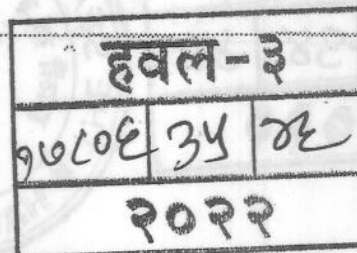 हवल-३
१७८०६ ३५ ४६
२०२२